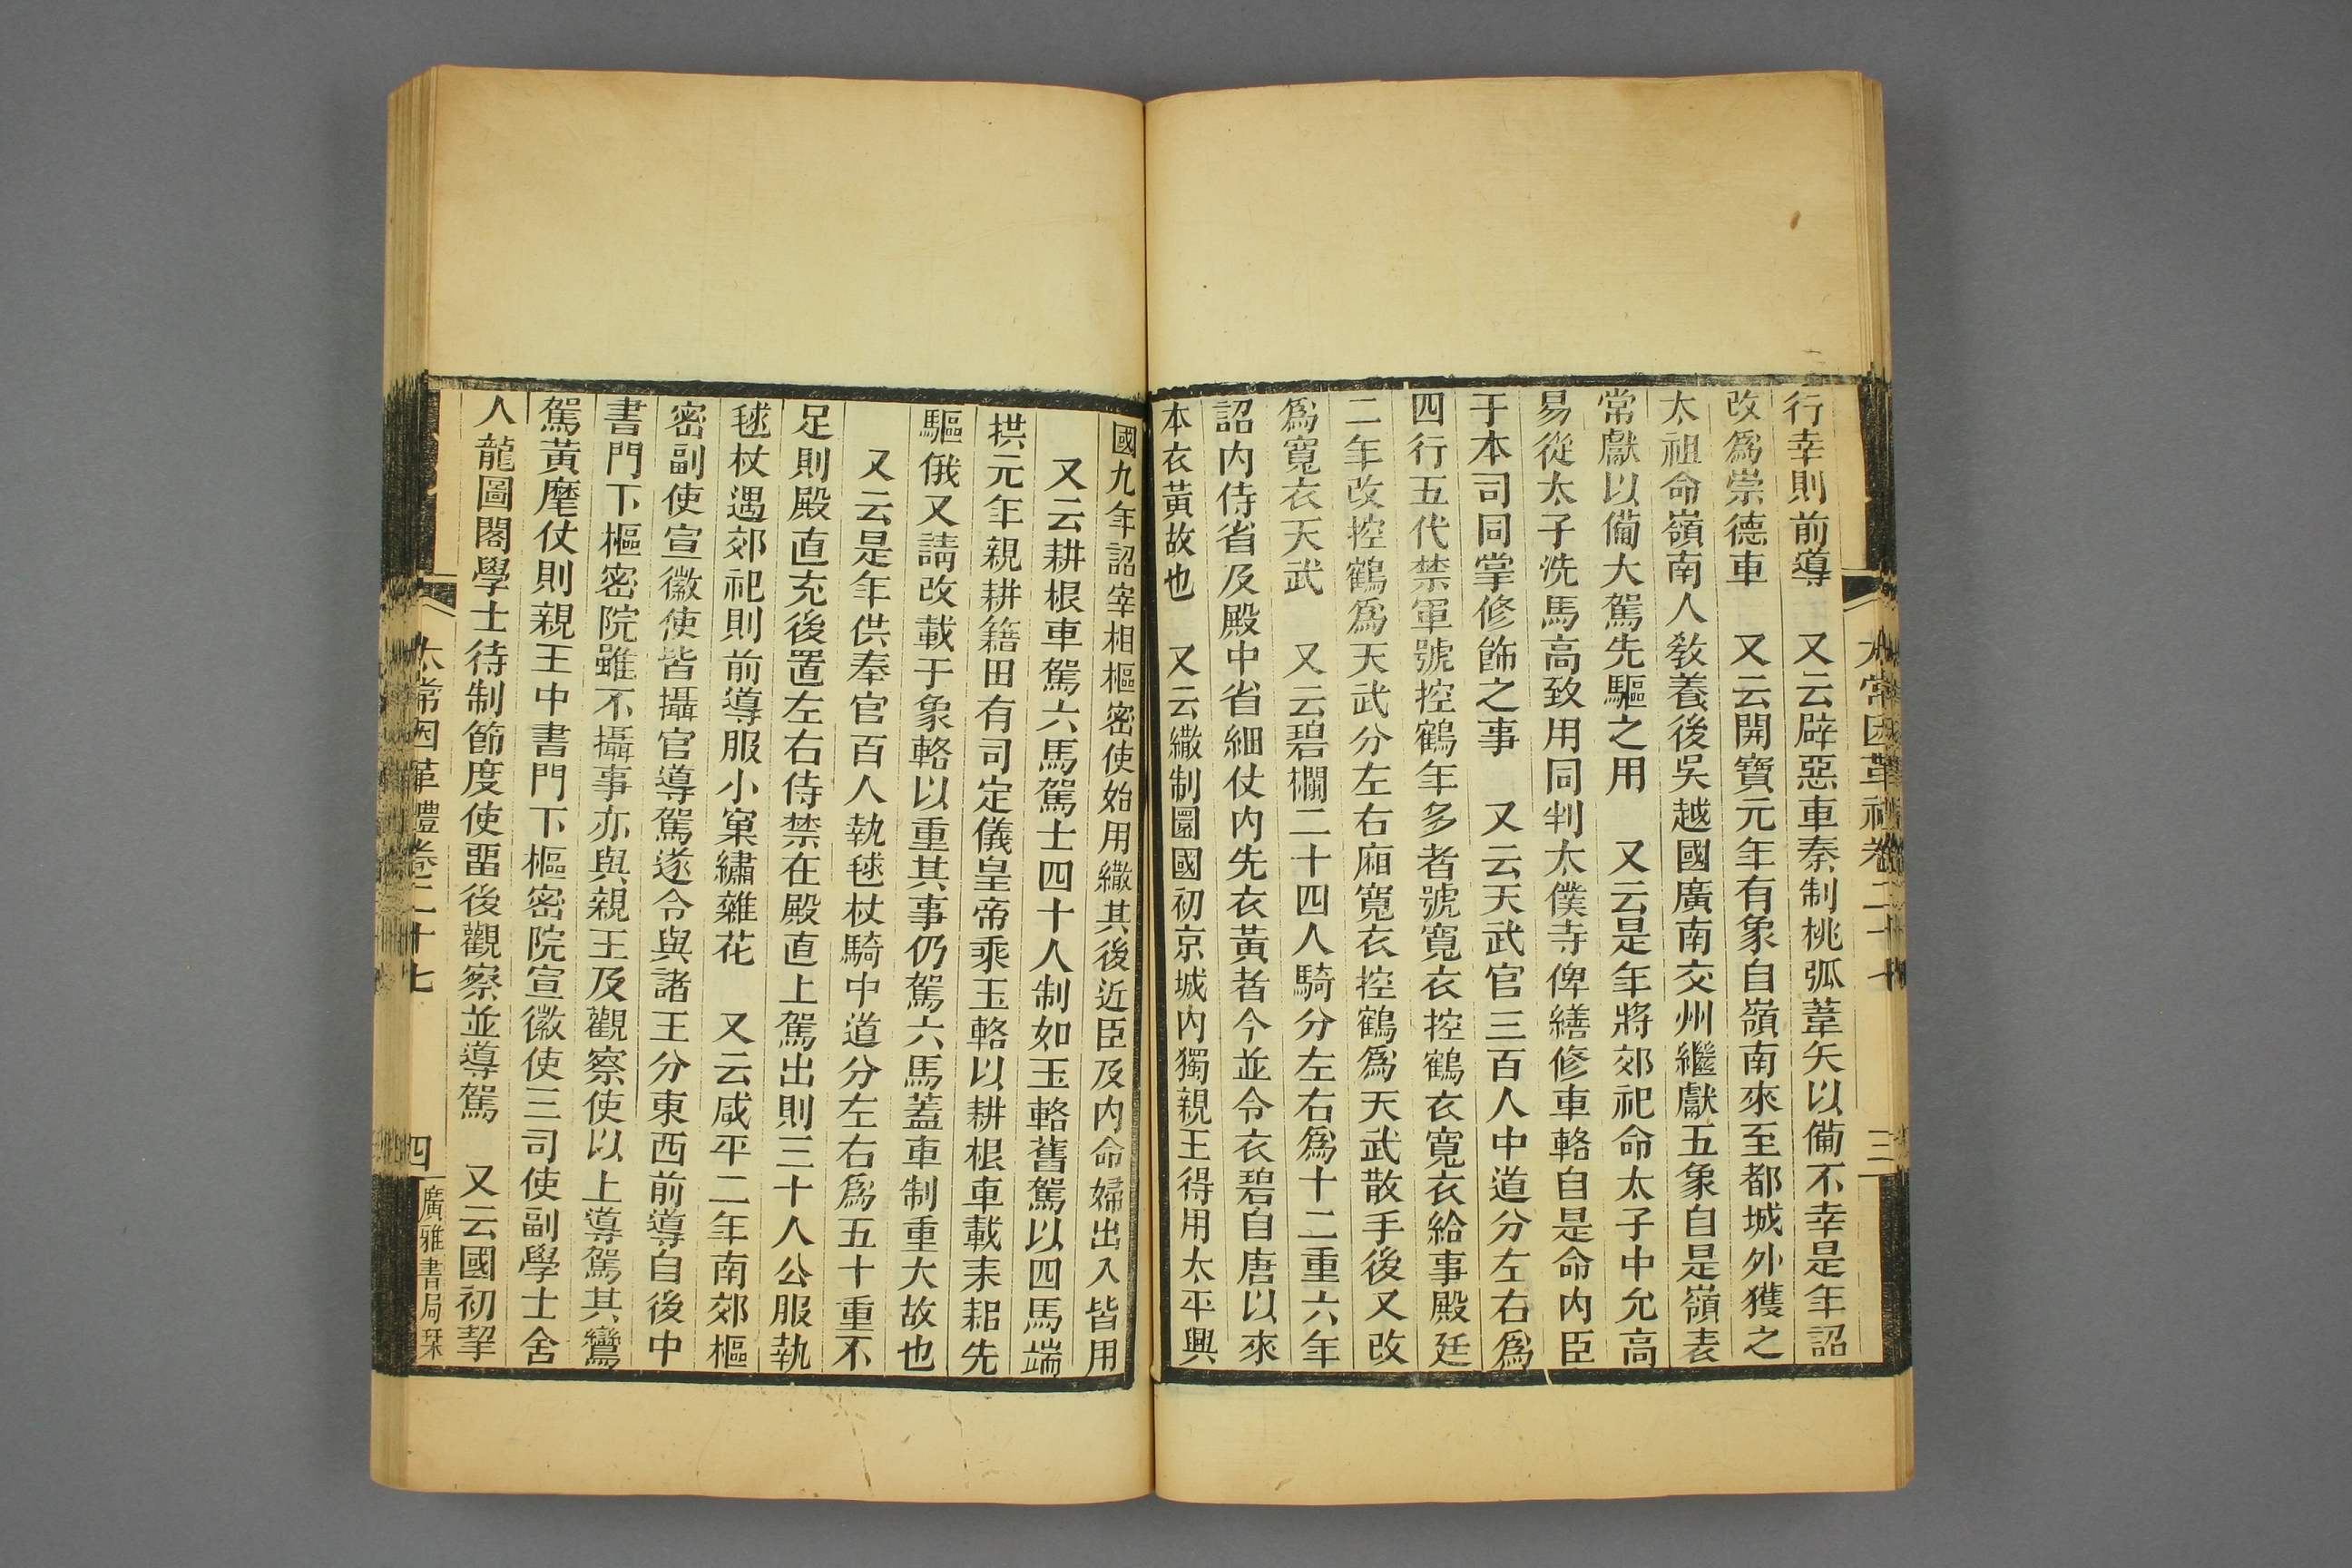 太常因革禮卷二十七
三
行幸則前導　又云辟惡車秦制桃弧葦矢以僃不幸是年詔
改爲崇德車　又云開寶元年有象自嶺南來至都城外獲之
太祖命嶺南人敎養後吳越國廣南交州繼獻五象自是嶺表
常獻以僃大駕先驅之用　又云是年將郊祀命太子中允高
易從太子洗馬高致用同判太僕寺俾繕修車輅自是命內臣
于本司同掌修飾之事　又云天武官三百人中道分左右爲
四行五代禁軍號控鶴年多者號寬衣控鶴衣寬衣給事殿廷
二年改控鶴爲天武分左右廂寬衣控鶴爲天武散手後又改
爲寬衣天武　又云碧襴二十四人騎分左右爲十二重六年
詔內侍省及殿中省細仗內先衣黃者今並令衣碧自唐以來
本衣黃故也　又云繖制圜國初京城內獨親王得用太平興
國九年詔宰相樞密使始用繖其後近臣及內命婦出入皆用
又云耕根車駕六馬駕士四十人制如玉輅舊駕以四馬端
拱元年親耕籍田有司定儀皇帝乘玉輅以耕根車載耒耜先
驅俄又請改載于象輅以重其事仍駕六馬蓋車制重大故也
又云是年供奉官百人執毬杖騎中道分左右爲五十重不
足則殿直充後置左右侍禁在殿直上駕出則三十人公服執
毬杖遇郊祀則前導服小窠繡雜花　又云咸平二年南郊樞
密副使宣徽使皆攝官導駕遂令與諸王分東西前導自後中
書門下樞密院雖不攝事亦與親王及觀察使以上導駕其鸞
駕黃麾仗則親王中書門下樞密院宣徽使三司使副學士舍
人龍圖閣學士待制節度使畱後觀察並導駕　又云國初挈
太常因革禮卷二十七
四
廣雅書局栞